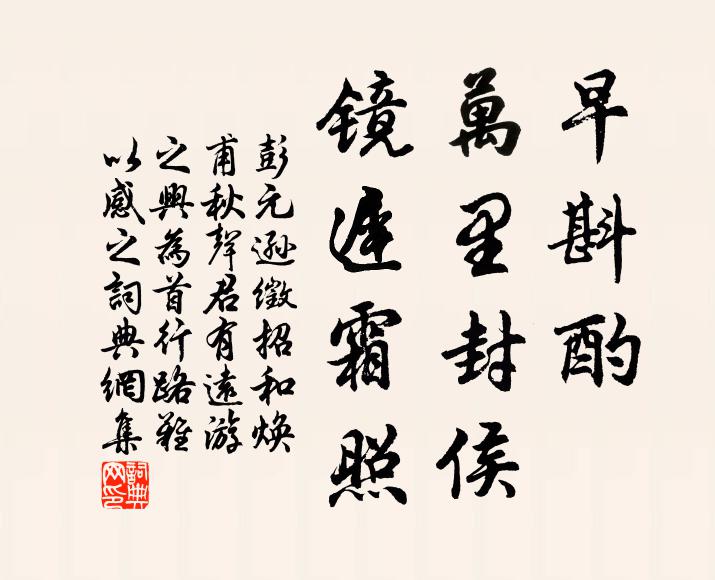 早斟酌
萬里封侯
镜遲霜照
彭元遜徵招和焕
甫秋聲君有遠游
之興為首行路難
以感之詞典網集
詞典
网印